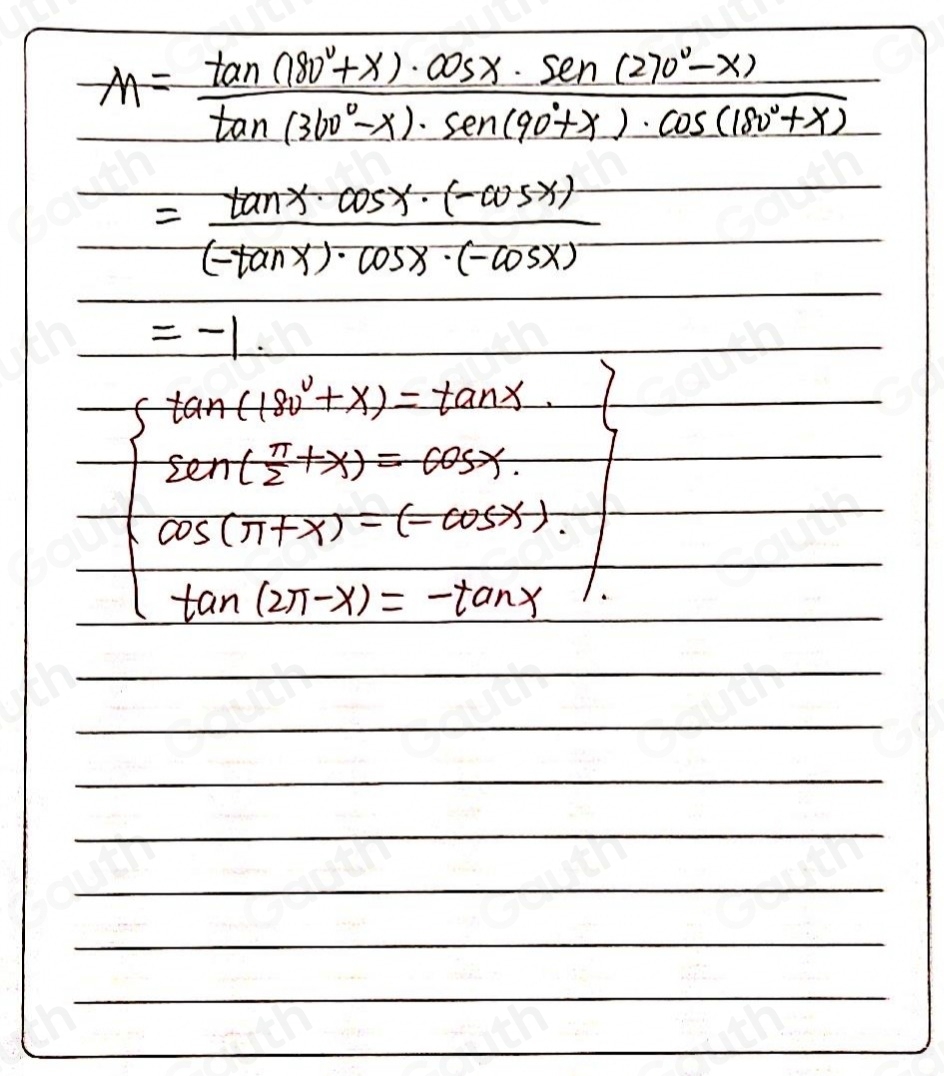 M = tan(180°+x)·cosx·sen(270°-x) / tan(360°-x)·sen(90°+x)·cos(180°+x)
= tanx·cosx·(-cosx) / (-tanx)·cosx·(-cosx)
= -1.
{ tan(180°+x) = tanx.
sen(π/2+x) = cosx.
cos(π+x) = (-cosx).
tan(2π-x) = -tanx }.
Gauth